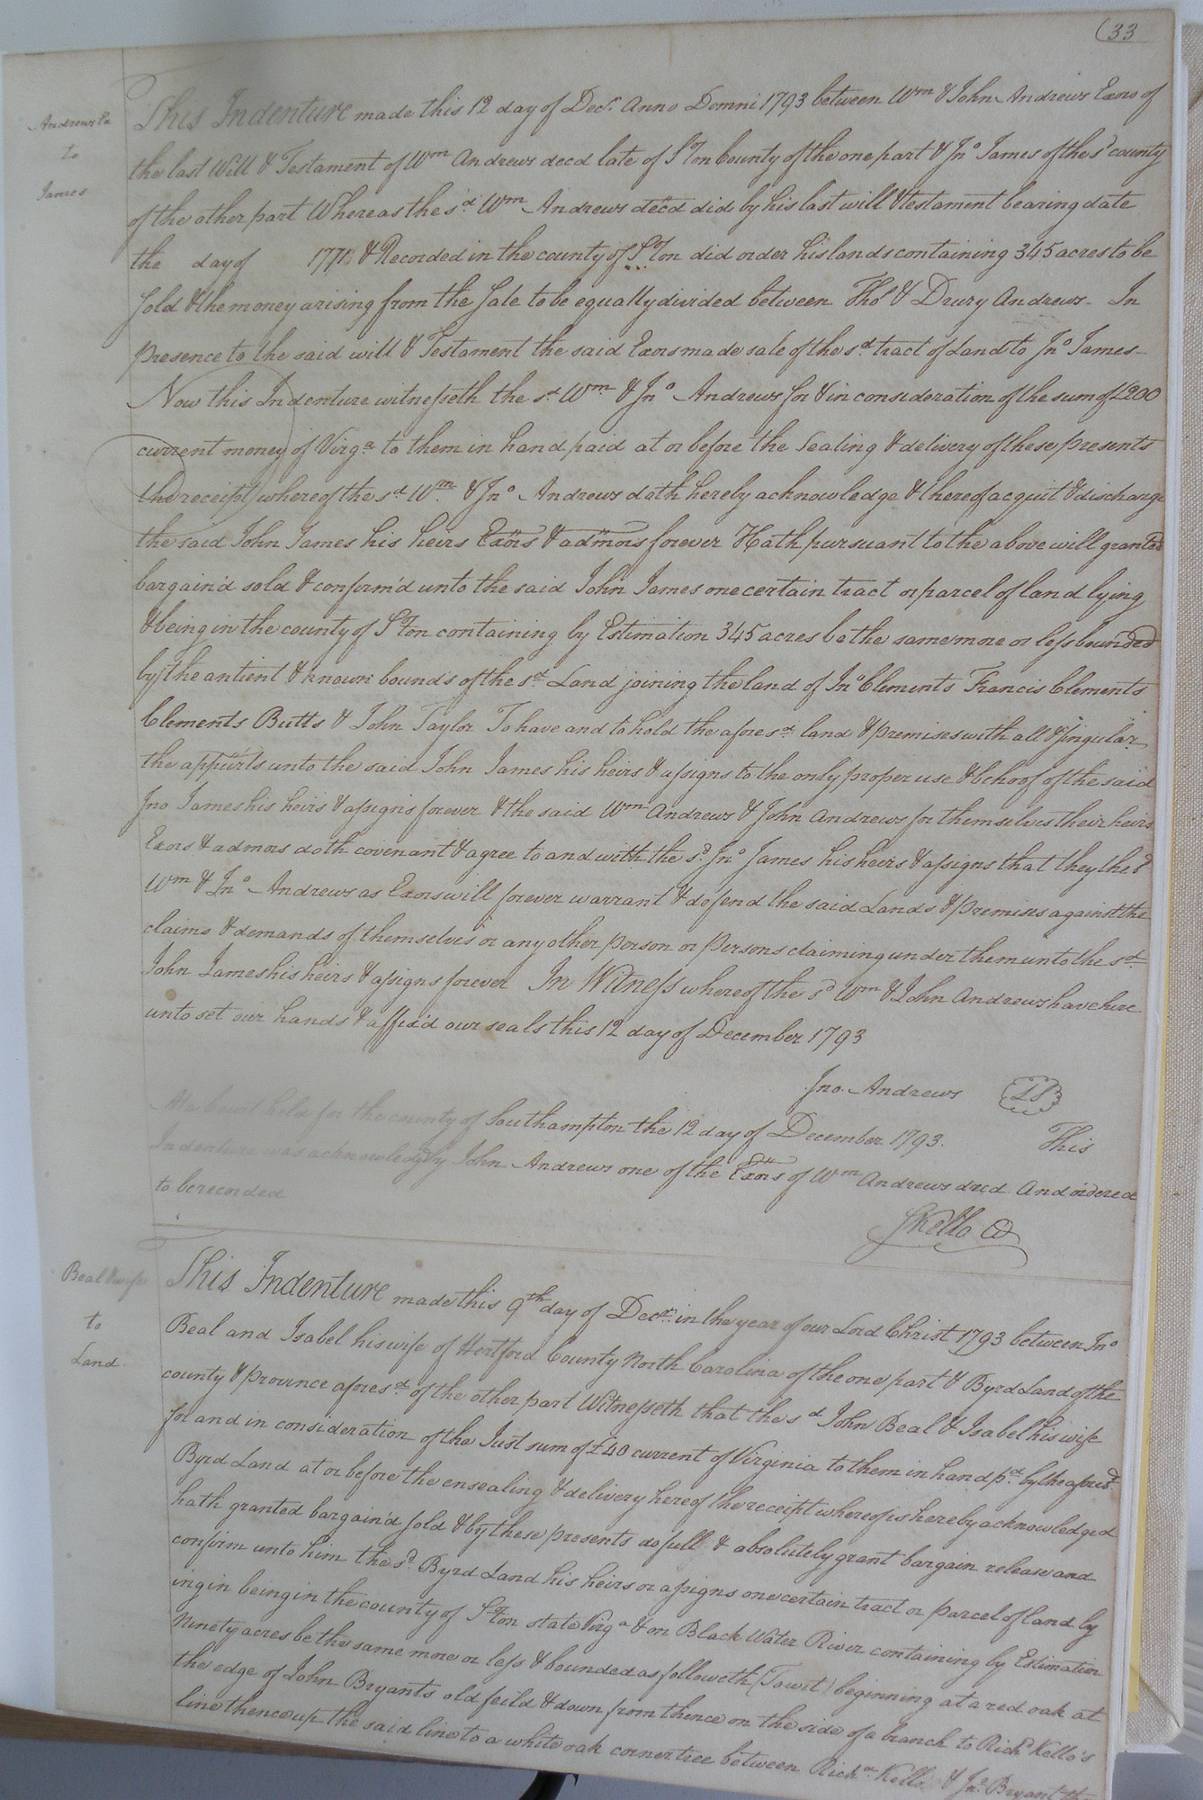 (33
Andrews Ex
to
James
This Indenture made this 12 day of Decr. Anno Domni 1793 between Wm & John Andrews Exors of
the last Will & Testament of Wm Andrews decd late of S°ton County of the one part & Jno James of the sd county
of the other part Whereas the sd Wm Andrews decd did by his last will & testament bearing date
the day of 177 & Recorded in the county of S°ton did order his lands containing 345 acres to be
sold & the money arising from the sale to be equally divided between Tho & Drury Andrews - In
presence to the said will & Testament the said Exors made sale of the sd tract of Land to Jno James -
Now this Indenture witnesseth the sd Wm & Jno Andrews for & in consideration of the sum of £200
current money of Virga to them in hand paid at or before the Sealing & delivery of these presents
the receipt whereof the sd Wm & Jno Andrews doth hereby acknowledge & thereof acquit & discharge
the said John James his heirs Exors & admors forever Hath pursuant to the above will granted
bargain'd sold & confirm'd unto the said John James one certain tract or parcel of land lying
& being in the county of S°ton containing by Estimation 345 acres be the same more or less bounded
by the antient & known bounds of the sd Land joining the land of Jno Clements Francis Clements
Clements Butts & John Taylor To have and to hold the afores'd land & premises with all & singular
the appurts unto the said John James his heirs & assigns to the only proper use & behoof of the said
Jno James his heirs & assigns forever & the said Wm Andrews & John Andrews for themselves their heirs
Exors & admors doth covenant & agree to and with the sd Jno James his heirs & assigns that they the sd
Wm & Jno Andrews as Exors will forever warrant & defend the said Lands & premises against the
claims & demands of themselves or any other person or persons claiming under them unto the sd
John James his heirs & assigns forever In Witness whereof the sd Wm & John Andrews have here
unto set our hands & affix'd our seals this 12 day of December 1793
Jno. Andrews LS
At a Court held for the county of Southampton the 12 day of December 1793. This
Indenture was acknowledg'd by John Andrews one of the Exors of Wm Andrews decd And ordered
to be recorded
S Kello Cl
Beal & wife
to
Land
This Indenture made this 9th day of Decr. in the year of our Lord Christ 1793 between Jno
Beal and Isabel his wife of Hertford County North Carolina of the one part & Byrd Land of the
county & province aforesd of the other part Witnesseth that the sd John Beal & Isabel his wife
for and in consideration of the Just sum of £40 current of Virginia to them in hand pd. by the aforesd
Byrd Land at or before the ensealing & delivery hereof the receipt whereof is hereby acknowledged
hath granted bargain'd sold & by these presents do full & absolutely grant bargain release and
confirm unto him the sd Byrd Land his heirs or assigns one certain tract or parcel of land by
ing in being in the county of S°ton state Virga & on Black Water River containing by Estimation
Ninety acres be the same more or less & bounded as followeth (Towit) beginning at a red oak at
the edge of John Bryants old feild & down from thence on the side of a branch to Richd Kello's
line thence up the said line to a white oak corner tree between Richd Kello & Jno Bryant